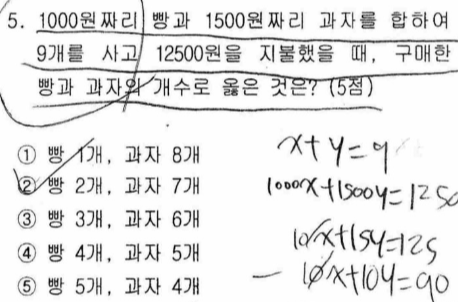 5. 1000원짜리 빵과 1500원짜리 과자를 합하여
9개를 사고 12500원을 지불했을 때, 구매한
빵과 과자의 개수로 옳은 것은? (5점)
① 빵 1개, 과자 8개
② 빵 2개, 과자 7개
③ 빵 3개, 과자 6개
④ 빵 4개, 과자 5개
⑤ 빵 5개, 과자 4개
x+y=9
1000x+1500y=1250
10x+15y=125
- 10x+10y=90